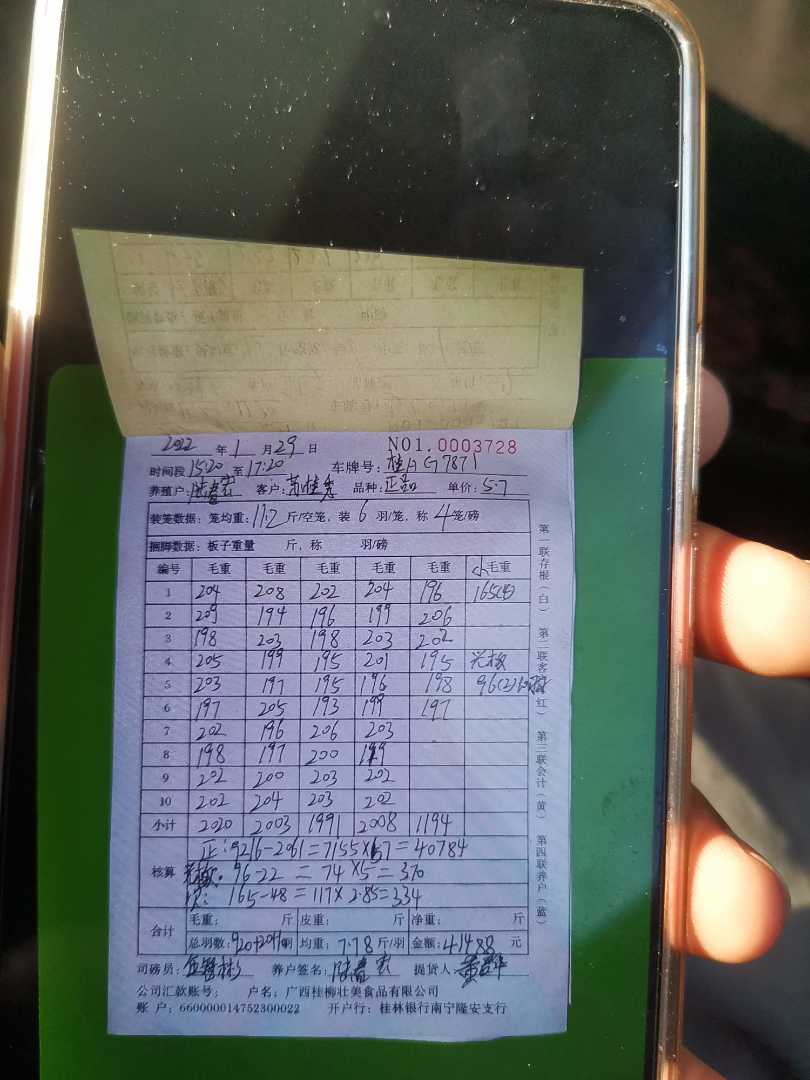 2022 年 1 月 29 日 NO1.0003728
时间段 15:20 至 17:20 车牌号：桂AG7871
养殖户： 客户： 品种：正品 单价：5.7
装笼数据：笼均重：11.2 斤/空笼，装 6 羽/笼，称 4 笼/磅
捆脚数据：板子重量 斤，称 羽/磅
编号 毛重 毛重 毛重 毛重 毛重 小毛重
1 204 208 202 204 196 165(4)
2 209 194 196 199 206
3 198 203 198 203 202
4 205 199 195 201 195
5 203 197 195 196 198 96(2)
6 197 205 193 199 197
7 202 196 206 203
8 198 197 200 199
9 202 200 203 202
10 202 204 203 202
小计 2020 2003 1991 2008 1194
正：9216-2061=7155×5.7=40784
核算 96-22=74×5=370
165-48=117×2.85=334
合计 毛重： 斤 皮重： 斤 净重： 斤
总羽数： 均重：7.78 斤/羽 金额：41488 元
司磅员： 养户签名： 提货人
公司汇款账号： 户名：广西桂柳壮美食品有限公司
账 户：660000014752300022 开户行：桂林银行南宁隆安支行
第一联存根（白） 第二联客 （红） 第三联会计（黄） 第四联养户（蓝）